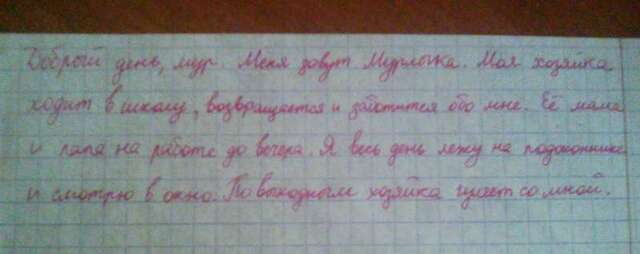 Добрый день, мур. Меня зовут Мурлыка. Моя хозяйка
ходит в школу, возвращается и заботится обо мне. Её мама
и папа на работе до вечера. Я весь день лежу на подоконнике
и смотрю в окно. По выходным хозяйка гуляет со мной.